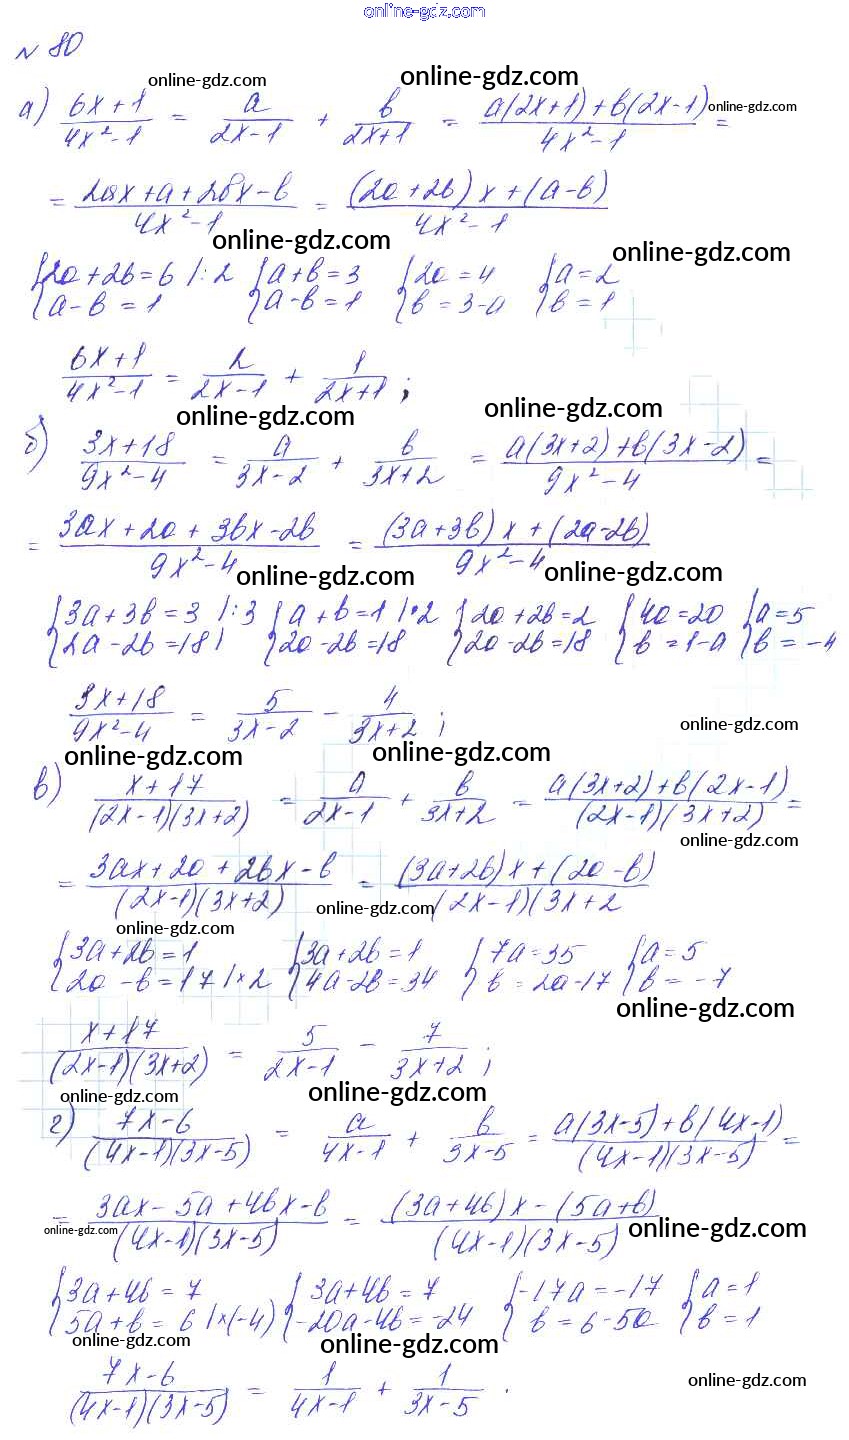 online-gdz.com
N 80
online-gdz.com online-gdz.com
а) (6x+1)/(4x²-1) = a/(2x-1) + b/(2x+1) = (a(2x+1)+b(2x-1))/(4x²-1) = online-gdz.com
= (2ax+a+2bx-b)/(4x²-1) = ((2a+2b)x+(a-b))/(4x²-1)
online-gdz.com online-gdz.com
{2a+2b=6 |:2 {a+b=3 {2a=4 {a=2
{a-b=1 {a-b=1 {b=3-a {b=1
(6x+1)/(4x²-1) = 2/(2x-1) + 1/(2x+1);
online-gdz.com online-gdz.com
б) (3x+18)/(9x²-4) = a/(3x-2) + b/(3x+2) = (a(3x+2)+b(3x-2))/(9x²-4) =
= (3ax+2a+3bx-2b)/(9x²-4) = ((3a+3b)x+(2a-2b))/(9x²-4)
online-gdz.com online-gdz.com
{3a+3b=3 |:3 {a+b=1 |·2 {2a+2b=2 {4a=20 {a=5
{2a-2b=18 | {2a-2b=18 {2a-2b=18 {b=1-a {b=-4
(3x+18)/(9x²-4) = 5/(3x-2) - 4/(3x+2); online-gdz.com
online-gdz.com online-gdz.com
в) (x+17)/((2x-1)(3x+2)) = a/(2x-1) + b/(3x+2) = (a(3x+2)+b(2x-1))/((2x-1)(3x+2)) =
online-gdz.com
= (3ax+2a+2bx-b)/((2x-1)(3x+2)) = ((3a+2b)x+(2a-b)/((2x-1)(3x+2
online-gdz.com
online-gdz.com
{3a+2b=1 {3a+2b=1 {7a=35 {a=5
{2a-b=17 |×2 {4a-2b=34 {b=2a-17 {b=-7
online-gdz.com
(x+17)/((2x-1)(3x+2)) = 5/(2x-1) - 7/(3x+2);
online-gdz.com online-gdz.com
г) (7x-6)/((4x-1)(3x-5)) = a/(4x-1) + b/(3x-5) = (a(3x-5)+b(4x-1))/((4x-1)(3x-5)) =
= (3ax-5a+4bx-b)/((4x-1)(3x-5)) = ((3a+4b)x-(5a+b))/((4x-1)(3x-5))
online-gdz.com online-gdz.com
{3a+4b=7 {3a+4b=7 {-17a=-17 {a=1
{5a+b=6 |×(-4) {-20a-4b=-24 {b=6-5a {b=1
online-gdz.com online-gdz.com
(7x-6)/((4x-1)(3x-5)) = 1/(4x-1) + 1/(3x-5). online-gdz.com